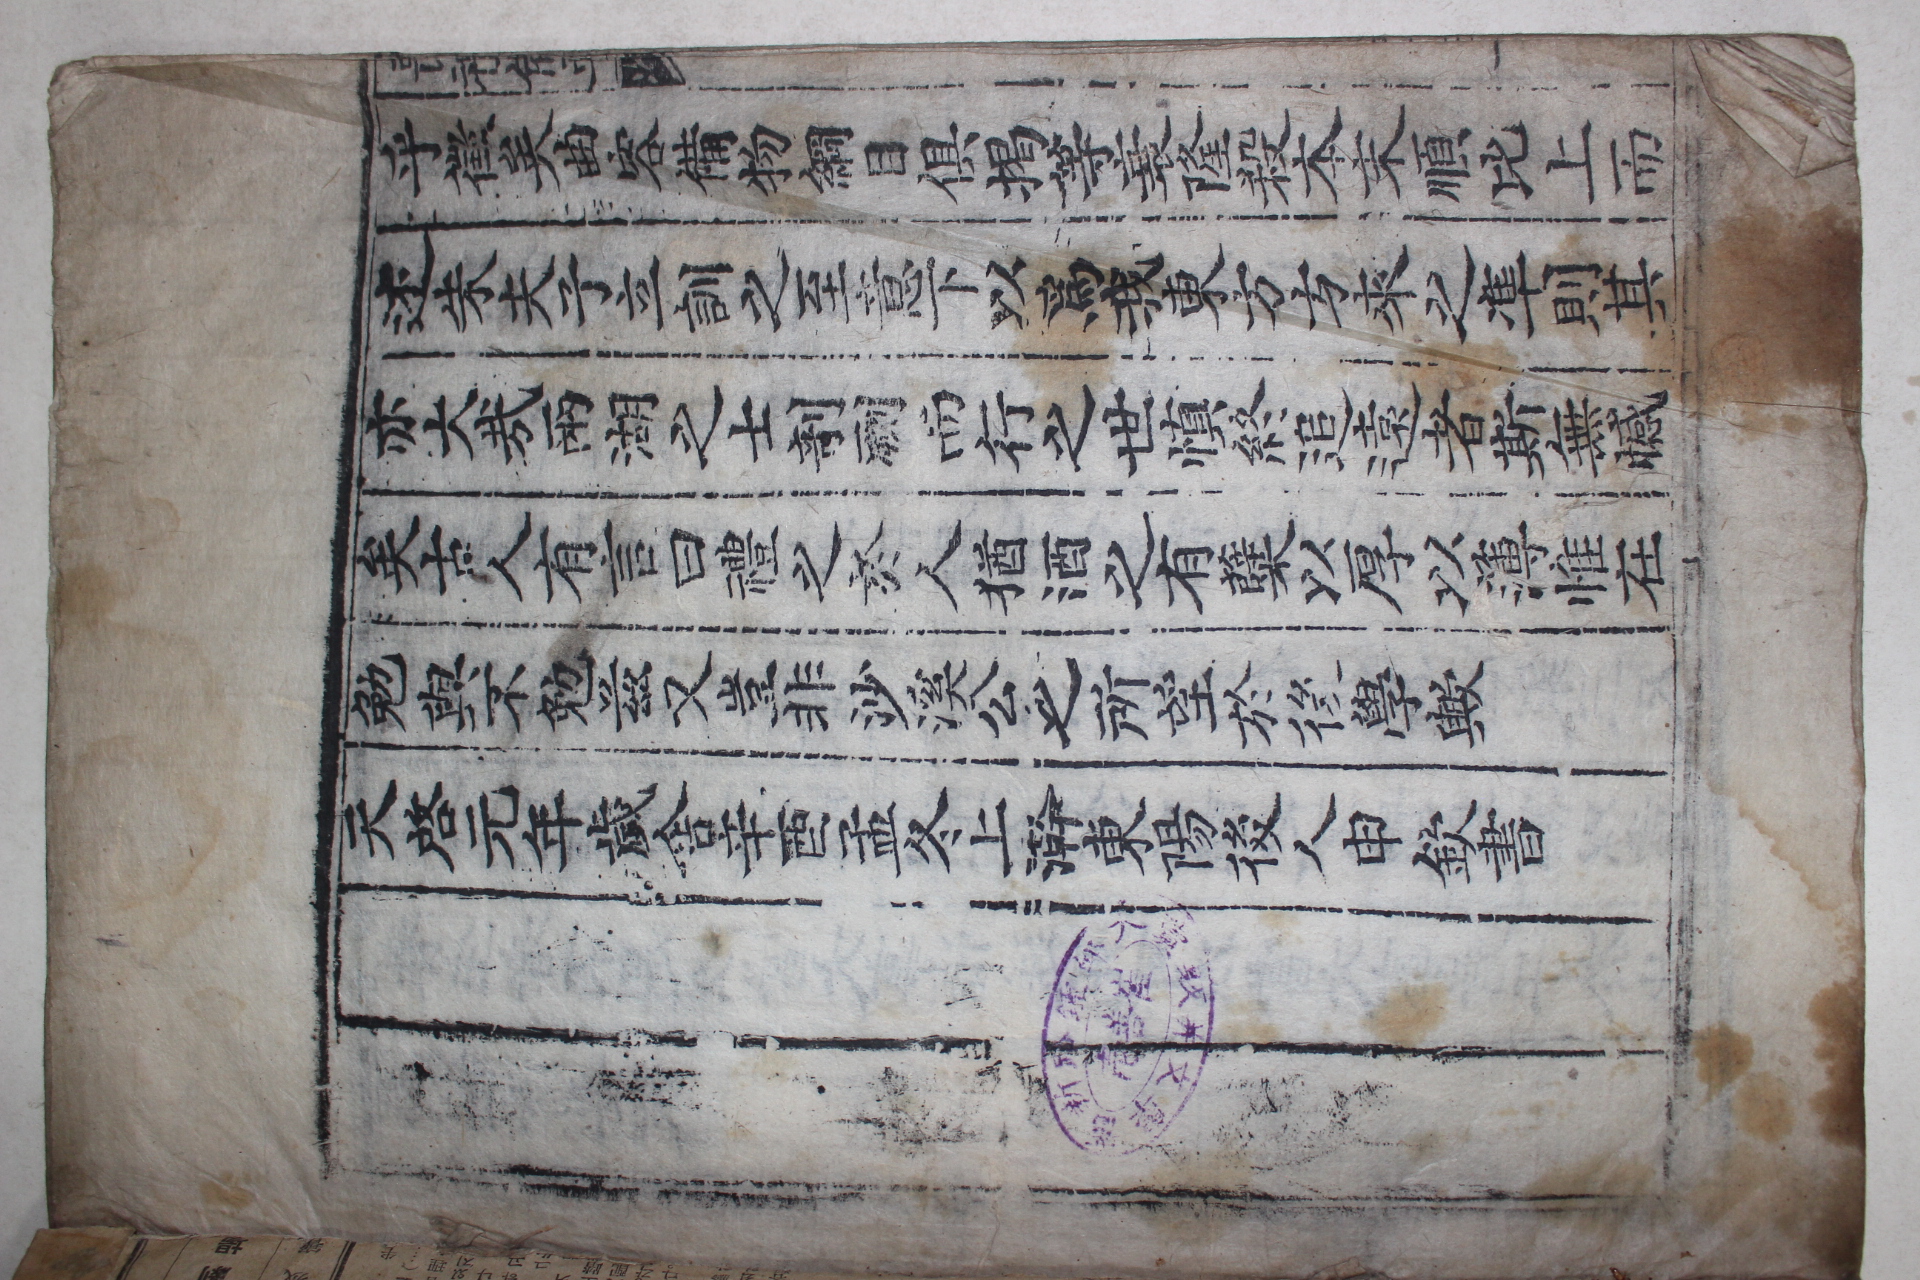 乎禮矣曲容備物綱目俱揭等衰隆殺本末順比上而
述朱夫子立訓之至意下以爲我東方方來之準則其
亦大哉兩湖之士剞劂而行之也愼終追遠者斯無憾
矣古人有言曰禮之於人猶酒之有糵以厚以薄惟在
勉與不勉茲又豈非沙溪公之所望於後學歟
天啓元年歲舍辛酉孟冬上澣東陽後人申欽書